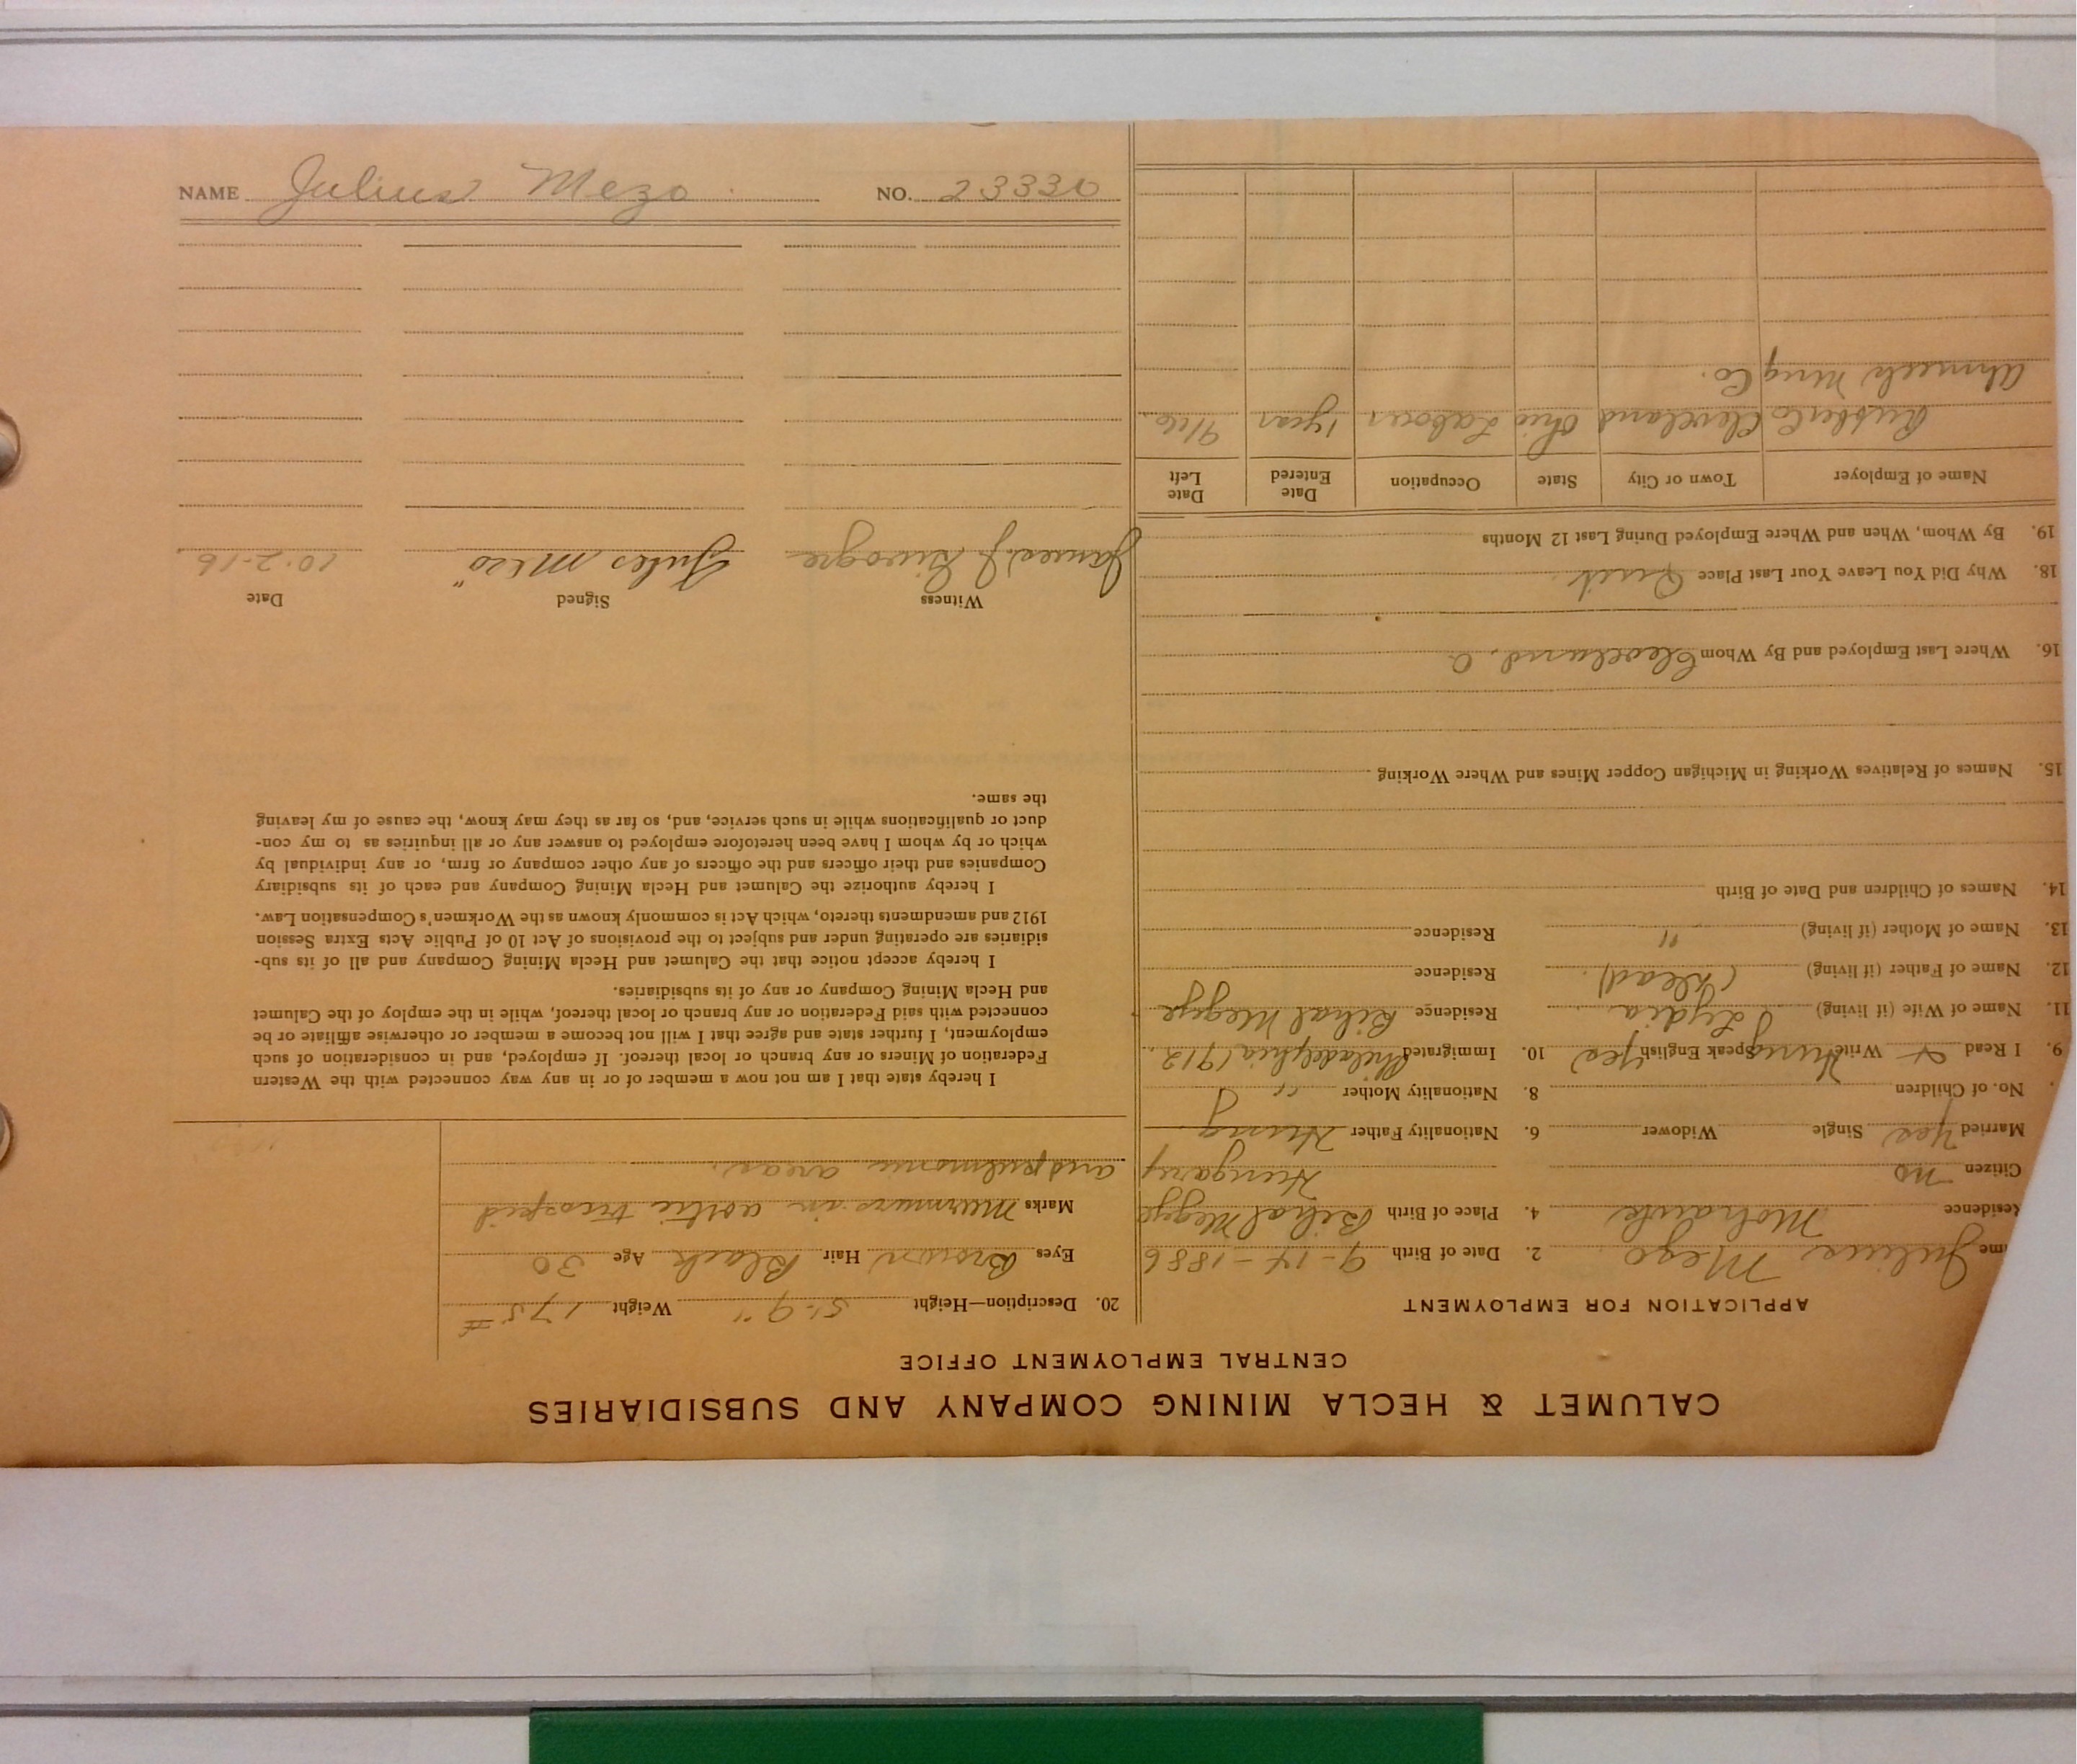 CALUMET & HECLA MINING COMPANY AND SUBSIDIARIES
CENTRAL EMPLOYMENT OFFICE
APPLICATION FOR EMPLOYMENT
me Julius Mezo 2. Date of Birth 9-14-1886
Residence Mohawk 4. Place of Birth Bihal Megye
Citizen no Hungary
Married Yes Single Widower 6. Nationality Father Hung
No. of Children 8. Nationality Mother "
9. I Read x Write Hung Speak English Yes 10. Immigrated Philadelphia 1912
11. Name of Wife (if living) Lydia Residence Bihal Megye
12. Name of Father (if living) (dead) Residence
13. Name of Mother (if living) " Residence
14. Names of Children and Date of Birth
15. Names of Relatives Working in Michigan Copper Mines and Where Working
16. Where Last Employed and By Whom Cleveland, O.
18. Why Did You Leave Your Last Place Quit
19. By Whom, When and Where Employed During Last 12 Months
Name of Employer Town or City State Occupation Date Entered Date Left
Rubber Co Cleveland Ohio Labour 1 year
Ahmeek Mng Co.
20. Description—Height 5'-9" Weight 175#
Eyes Brown Hair Black Age 30
Marks Murmurs in aortic tricuspid
and pulmonic areas.
I hereby state that I am not now a member of or in any way connected with the Western
Federation of Miners or any branch or local thereof. If employed, and in consideration of such
employment, I further state and agree that I will not become a member or otherwise affiliate or be
connected with said Federation or any branch or local thereof, while in the employ of the Calumet
and Hecla Mining Company or any of its subsidiaries.
I hereby accept notice that the Calumet and Hecla Mining Company and all of its sub-
sidiaries are operating under and subject to the provisions of Act 10 of Public Acts Extra Session
1912 and amendments thereto, which Act is commonly known as the Workmen's Compensation Law.
I hereby authorize the Calumet and Hecla Mining Company and each of its subsidiary
Companies and their officers and the officers of any other company or firm, or any individual by
which or by whom I have been heretofore employed to answer any or all inquiries as to my con-
duct or qualifications while in such service, and, so far as they may know, the cause of my leaving
the same.
Witness Signed Date
James J. Jules Mezo 10-2-16
NAME Julius Mezo NO. 23330